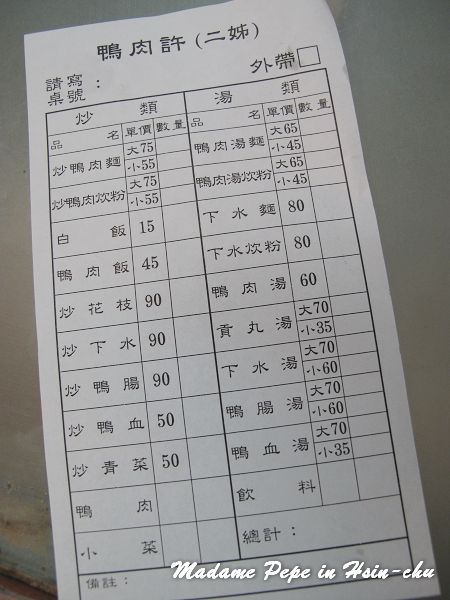 鴨肉許(二姊)
請寫桌號：
外帶□
炒類
品名 單價 數量
炒鴨肉麵 大75 小55
炒鴨肉炊粉 大75 小55
白飯 15
鴨肉飯 45
炒花枝 90
炒下水 90
炒鴨腸 90
炒鴨血 50
炒青菜 50
鴨肉
小菜
備註：
湯類
品名 單價 數量
鴨肉湯麵 大65 小45
鴨肉湯炊粉 大65 小45
下水麵 80
下水炊粉 80
鴨肉湯 60
貢丸湯 大70 小35
下水湯 大70 小60
鴨腸湯 大70 小60
鴨血湯 大70 小35
飲料
總計：
Madame Pepe in Hsin-chu